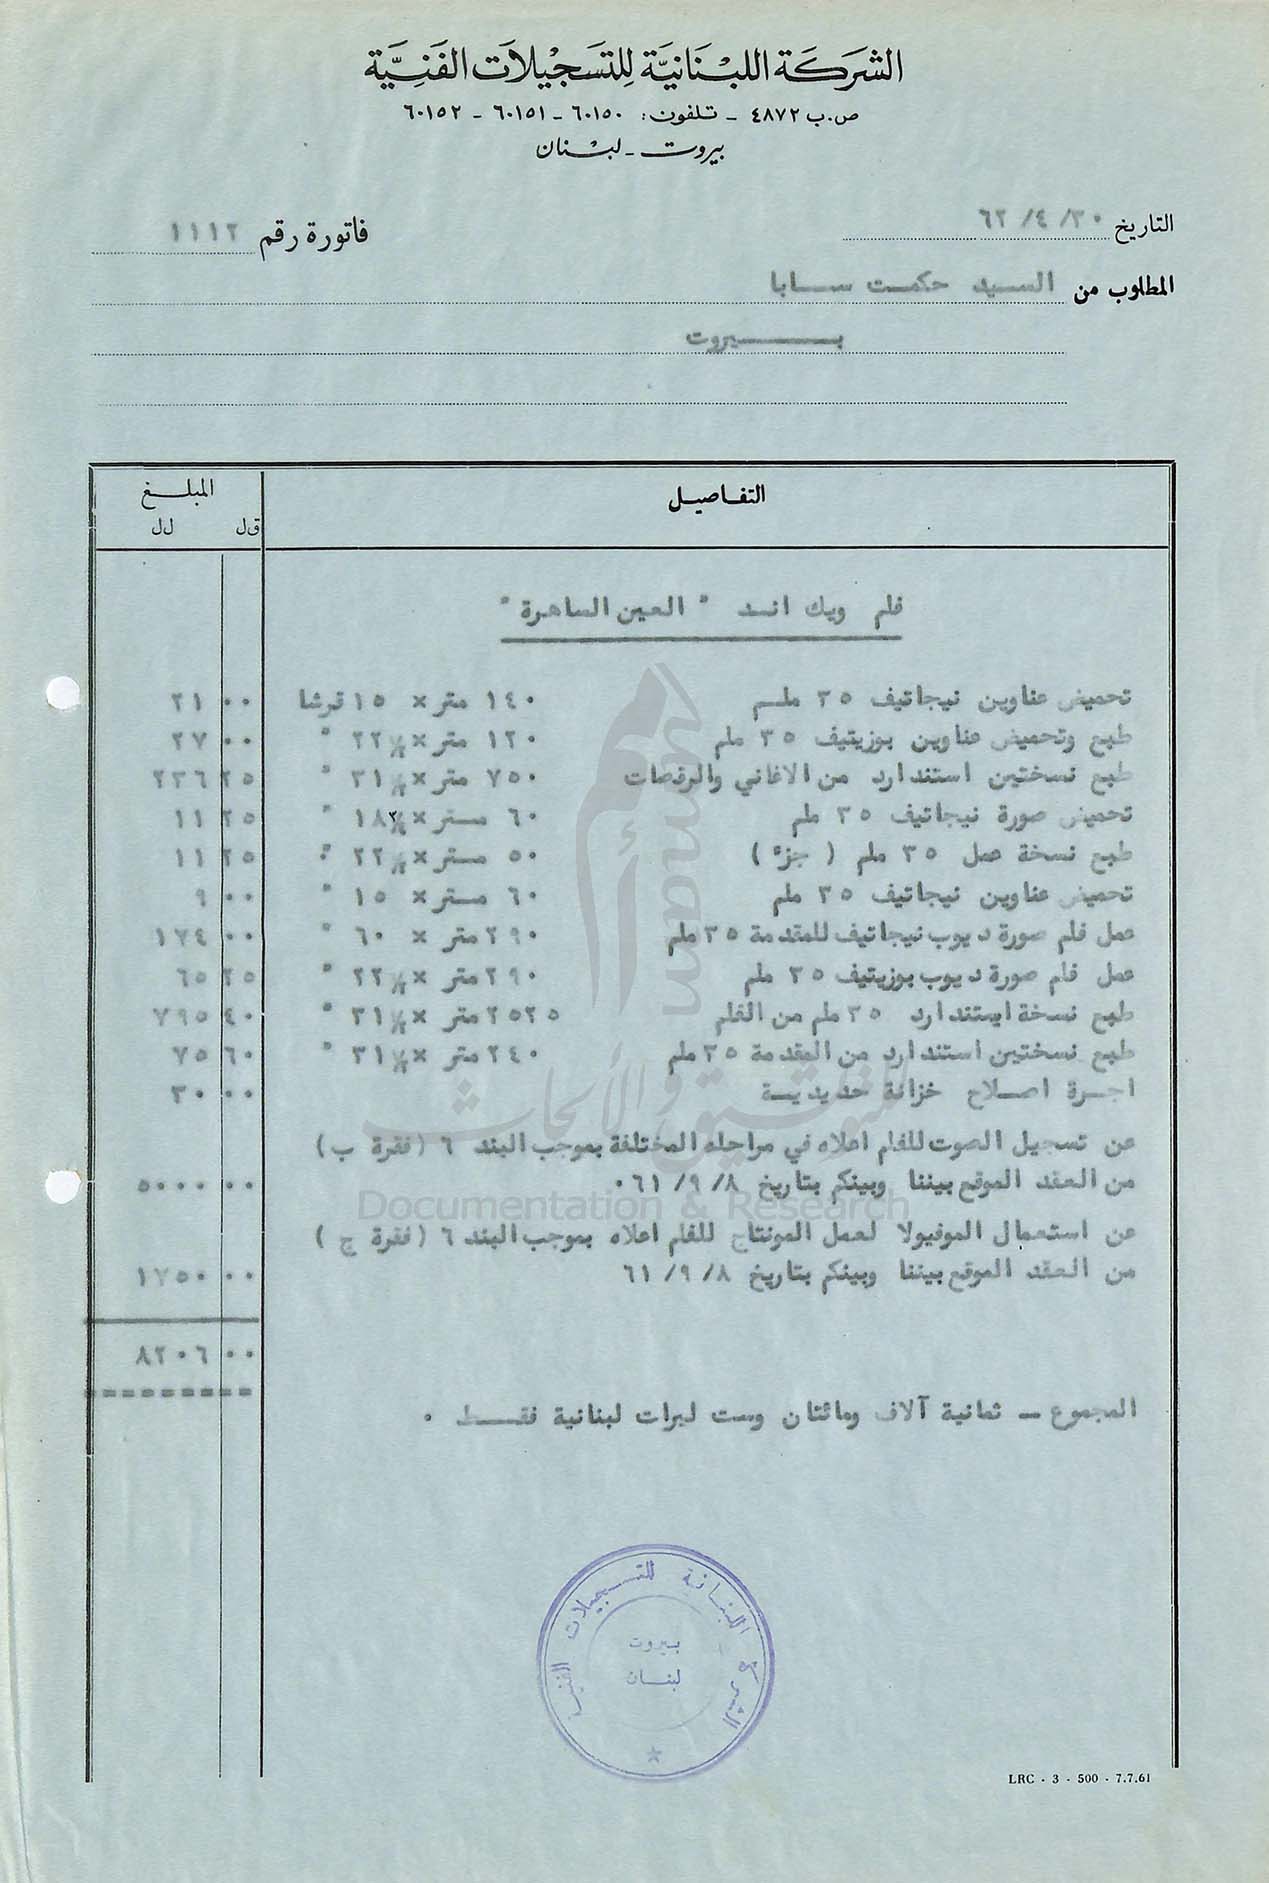 الشركة اللبنانية للتسجيلات الفنية
ص.ب ٤٨٧٢ - تلفون: ٦٠١٥٠ - ٦٠١٥١ - ٦٠١٥٢
بيروت - لبنان
التاريخ ٣٠/ ٤/ ٦٢
فاتورة رقم ١١١٢
المطلوب من السيد حكمت سابا
بيروت
التفاصيل المبلغ
ق.ل ل.ل
فلم ويك اند " العين الساهرة "
تحميض عناوين نيجاتيف ٣٥ ملم ١٤٠ متر × ١٥ قرشا ٠٠ ٢١
طبع وتحميض عناوين بوزيتيف ٣٥ ملم ١٢٠ متر × ٢٢½ " ٠٠ ٢٧
طبع نسختين استندارد من الاغاني والرقصات ٧٥٠ متر × ٣١½ " ٢٥ ٢٣٦
تحميض صورة نيجاتيف ٣٥ ملم ٦٠ متر × ١٨¾ " ٢٥ ١١
طبع نسخة عمل ٣٥ ملم ( جزء ) ٥٠ متر × ٢٢½ " ٢٥ ١١
تحميض عناوين نيجاتيف ٣٥ ملم ٦٠ متر × ١٥ " ٠٠ ٩
عمل فلم صورة ديوب نيجاتيف للمقدمة ٣٥ ملم ٢٩٠ متر × ٦٠ " ٠٠ ١٧٤
عمل فلم صورة ديوب بوزيتيف ٣٥ ملم ٢٩٠ متر × ٢٢½ " ٢٥ ٦٥
طبع نسخة ايستندارد ٣٥ ملم من الفلم ٢٥٢٥ متر × ٣١½ " ٤٠ ٧٩٥
طبع نسختين استندارد من المقدمة ٣٥ ملم ٢٤٠ متر × ٣١½ " ٦٠ ٧٥
اجرة اصلاح خزانة حديدية ٠٠ ٣٠
عن تسجيل الصوت للفلم اعلاه في مراحله المختلفة بموجب البند ٦ (فقرة ب)
من العقد الموقع بيننا وبينكم بتاريخ ٨/ ٩/ ٦١٠ ٠٠ ٥٠٠٠
عن استعمال الموفيولا لعمل المونتاج للفلم اعلاه بموجب البند ٦ (فقرة ج )
من العقد الموقع بيننا وبينكم بتاريخ ٨/ ٩/ ٦١ ٠٠ ١٧٥٠
٠٠ ٨٢٠٦
المجموع - ثمانية آلاف ومائتان وست ليرات لبنانية فقط ٠
الشركة اللبنانية للتسجيلات الفنية
بيروت
لبنان
LRC - 3 - 500 - 7.7.61
أمم umam
للتوثيق والأبحاث
Documentation & Research